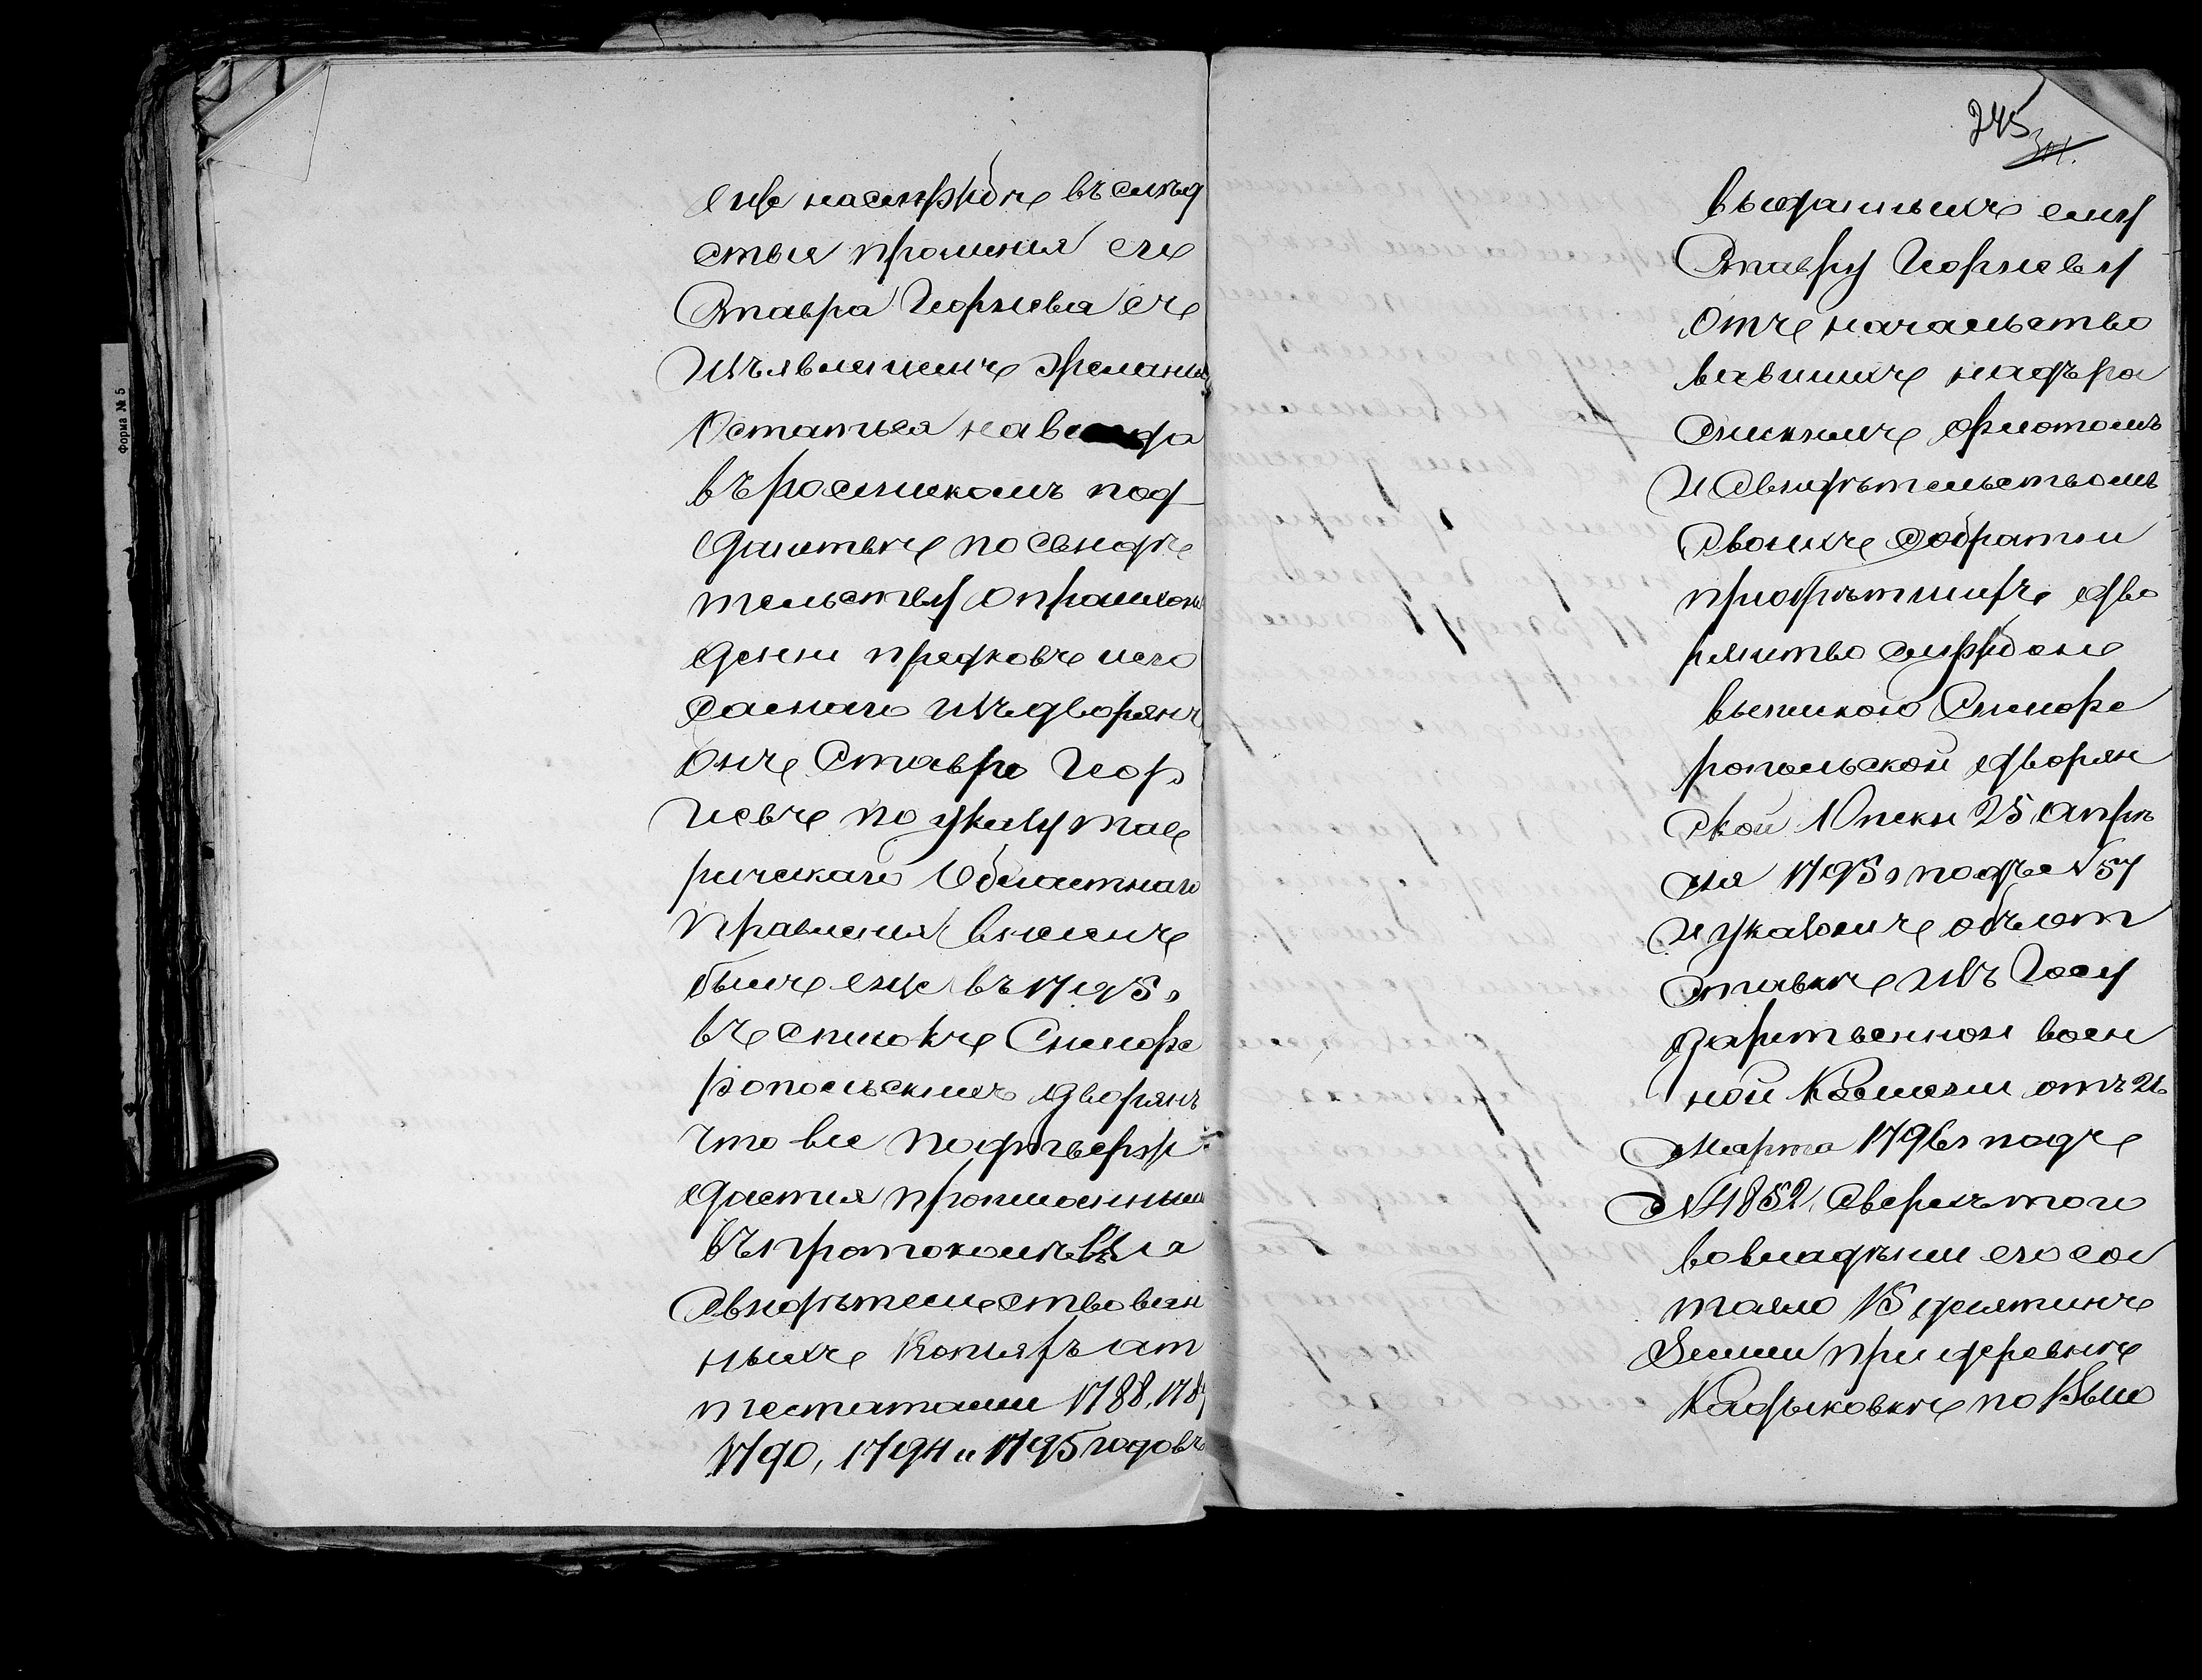 еще на службѣ въ слѣд
ствіе прошенія его
Ставра Георгіева съ
изъявленіемъ желанія
остаться навсегда
въ россійскомъ под
данствѣ по свидѣ
тельству о происхож
деніи предковъ и его
самаго изъ дворянъ
онъ Ставро Геор
гіевъ по указу тав
рическаго Областнаго
Правленія внесенъ
былъ еще въ 1795 г
въ списокъ Симфе
ропольскихъ дворянъ
что все подтверж
дается прописанными
въ протоколѣ
свидѣтельствован
ныхъ копіяхъ ат
тестатами 1788, 1789
1790, 1794 и 1795 годовъ
245
выданныхъ ему
Ставру Георгіеву
отъ начальство
вавшихъ надъ ра
флотомъ
и свидѣтельствомъ
своихъ собратій
пріобрѣтшихъ дво
рянство службою
Симфе
ропольской дворян
ской Опеки 25 апрѣ
ля 1795 г подъ № 57
и указомъ объ от
ставкѣ изъ Госу
дарственной воен
ной Коллегіи отъ 21
Марта 1796 г подъ
№ 1852, сверхъ того
во владѣніи его сос
тояло 15 десятинъ
земли при деревнѣ
Кадыковкѣ по